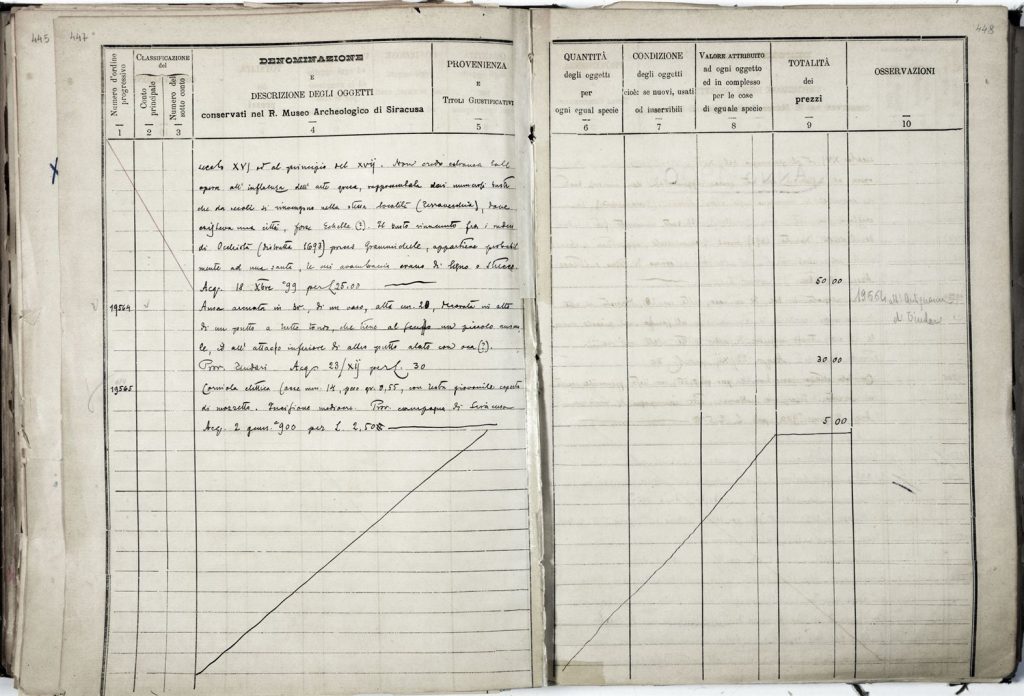 445
447
448
Numero d'ordine progressivo
CLASSIFICAZIONE del
Conto principale
Numero del sotto conto
DENOMINAZIONE
E
DESCRIZIONE DEGLI OGGETTI
conservati nel R. Museo Archeologico di Siracusa
PROVENIENZA
E
TITOLI GIUSTIFICATIVI
QUANTITÀ
degli oggetti
per
ogni egual specie
CONDIZIONE
degli oggetti
cioè: se nuovi, usati
od inservibili
VALORE ATTRIBUITO
ad ogni oggetto
ed in complesso
per le cose
di eguale specie
TOTALITÀ
dei
prezzi
OSSERVAZIONI
1 2 3 4 5 6 7 8 9 10
x
secolo XVI od al principio del XVIJ. Non credo estranea
opera all'influenza dell'arte greca, dai numerosi
che da se rinvengono nella stessa località (Terravecchia), dove
esisteva una città, forse Echetla (?). Il busto rinvenuto fra i ruderi
di Occhiolà (distrutta 1693) presso Grammichele, appartiene probabil
mente ad una santa, le cui erano di legno o stucco.
Acq. 18 Xbre '99 per £ 25.00
50 00
19564
Ansa in br., di un vaso, alta cm. 20, decorata in alto
di un putto a tutto tondo, che tiene al un piccolo
le, ed all'attacco inferiore di altro putto alato con oca (?).
Prov. Tindari Acq. 23/XIJ per £. 30
30 00
19565
Corniola elittica (asse mm. 14, peso gr. 0,55, con testa giovanile coperta
di . Incisione mediocre. Prov. campagna di Siracusa
Acq. 2 genn. '900 per £. 2,50
5 00
19554
di Tindari